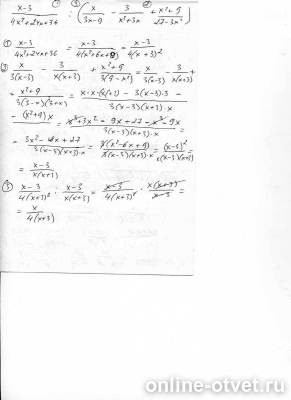 (x-3)/(4x²+24x+36) : (x/(3x-9) - 3/(x²+3x) + (x²+9)/(27-3x²))
① (x-3)/(4x²+24x+36) = (x-3)/(4(x²+6x+9)) = (x-3)/(4(x+3)²)
② x/(3(x-3)) - 3/(x(x+3)) + (x²+9)/(3(9-x²)) = x/(3(x-3)) - 3/(x(x+3)) +
+ (x²+9)/(3(3-x)(3+x)) = (x·x·(x+3) - 3(x-3)·3 -)/(3(x-3)(x+3)·x)
- (x²+9)x = (x³+3x²-9x+27-x³-9x)/(3(x-3)(x+3)·x) =
= (3x²-18x+27)/(3(x-3)(x+3)x) = (3(x²-6x+9))/(3(x-3)(x+3)·x) = (x-3)²/(x(x-3)(x+3)) =
= (x-3)/(x(x+3))
③ (x-3)/(4(x+3)²) : (x-3)/(x(x+3)) = (x-3)/(4(x+3)²) · (x(x+3))/(x-3) =
= x/(4(x+3))
online-otvet.ru